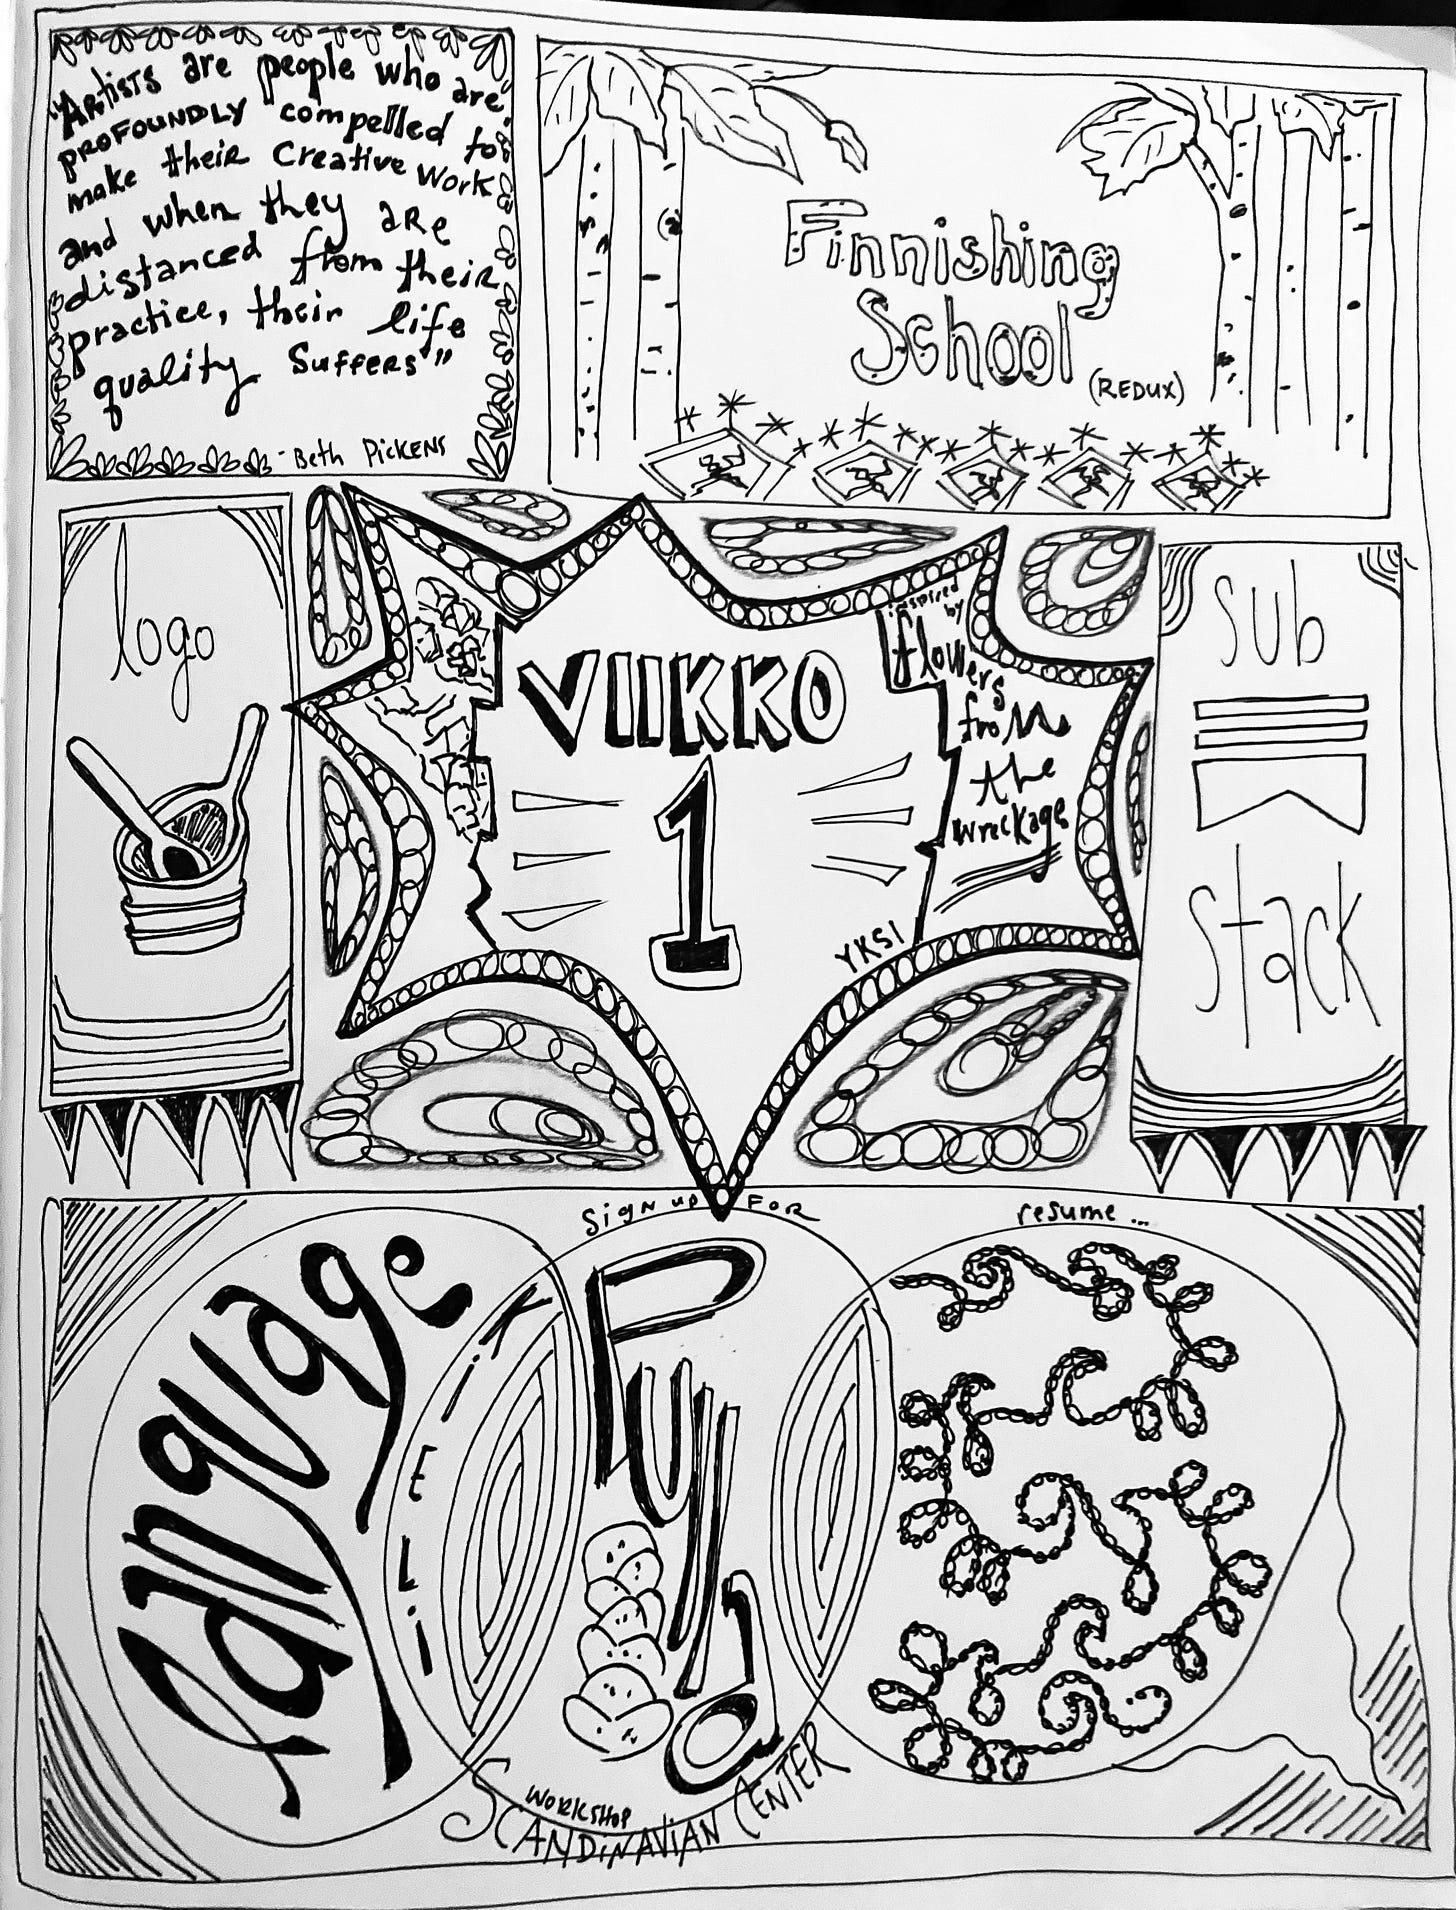 "Artists are people who are
PROFOUNDLY compelled to
make their Creative Work
and when they are
distanced from their
practice, their life
quality Suffers"
- Beth PICKENS
Finnishing
School
(REDUX)
logo
VIIKKO
1
YKSI
inspired
by
flowers
from
the
wreckage
sub
stack
Sign up FOR
resume...
language
KiELi
Pulla
WORKSHOP
SCANDiNAViAN CENTER